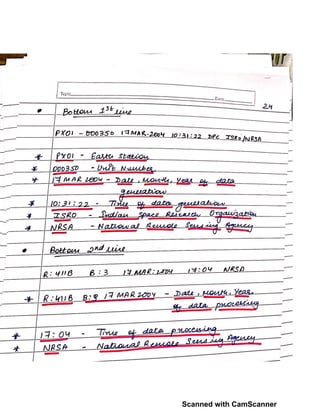 Topic
Date
24
• Bottom 1st line
PX01 - 000350 17 MAR-2004 10:31:22 DPC ISRO/NRSA
* PX01 - Earth Station
* 000350 - Unit Number
* 17 MAR 2004 - Date, Month, Year of data
generation
* 10:31:22 - Time of data generation
* ISRO - Indian Space Research Organization
* NRSA - National Remote Sensing Agency
• Bottom 2nd line
R:411B B:3 17.MAR.2004 17:04 NRSA
* R:411B B:9 17 MAR 2004 - Date, Month, Year
of data processing
* 17:04 - Time of data processing
* NRSA - National Remote Sensing Agency
Scanned with CamScanner